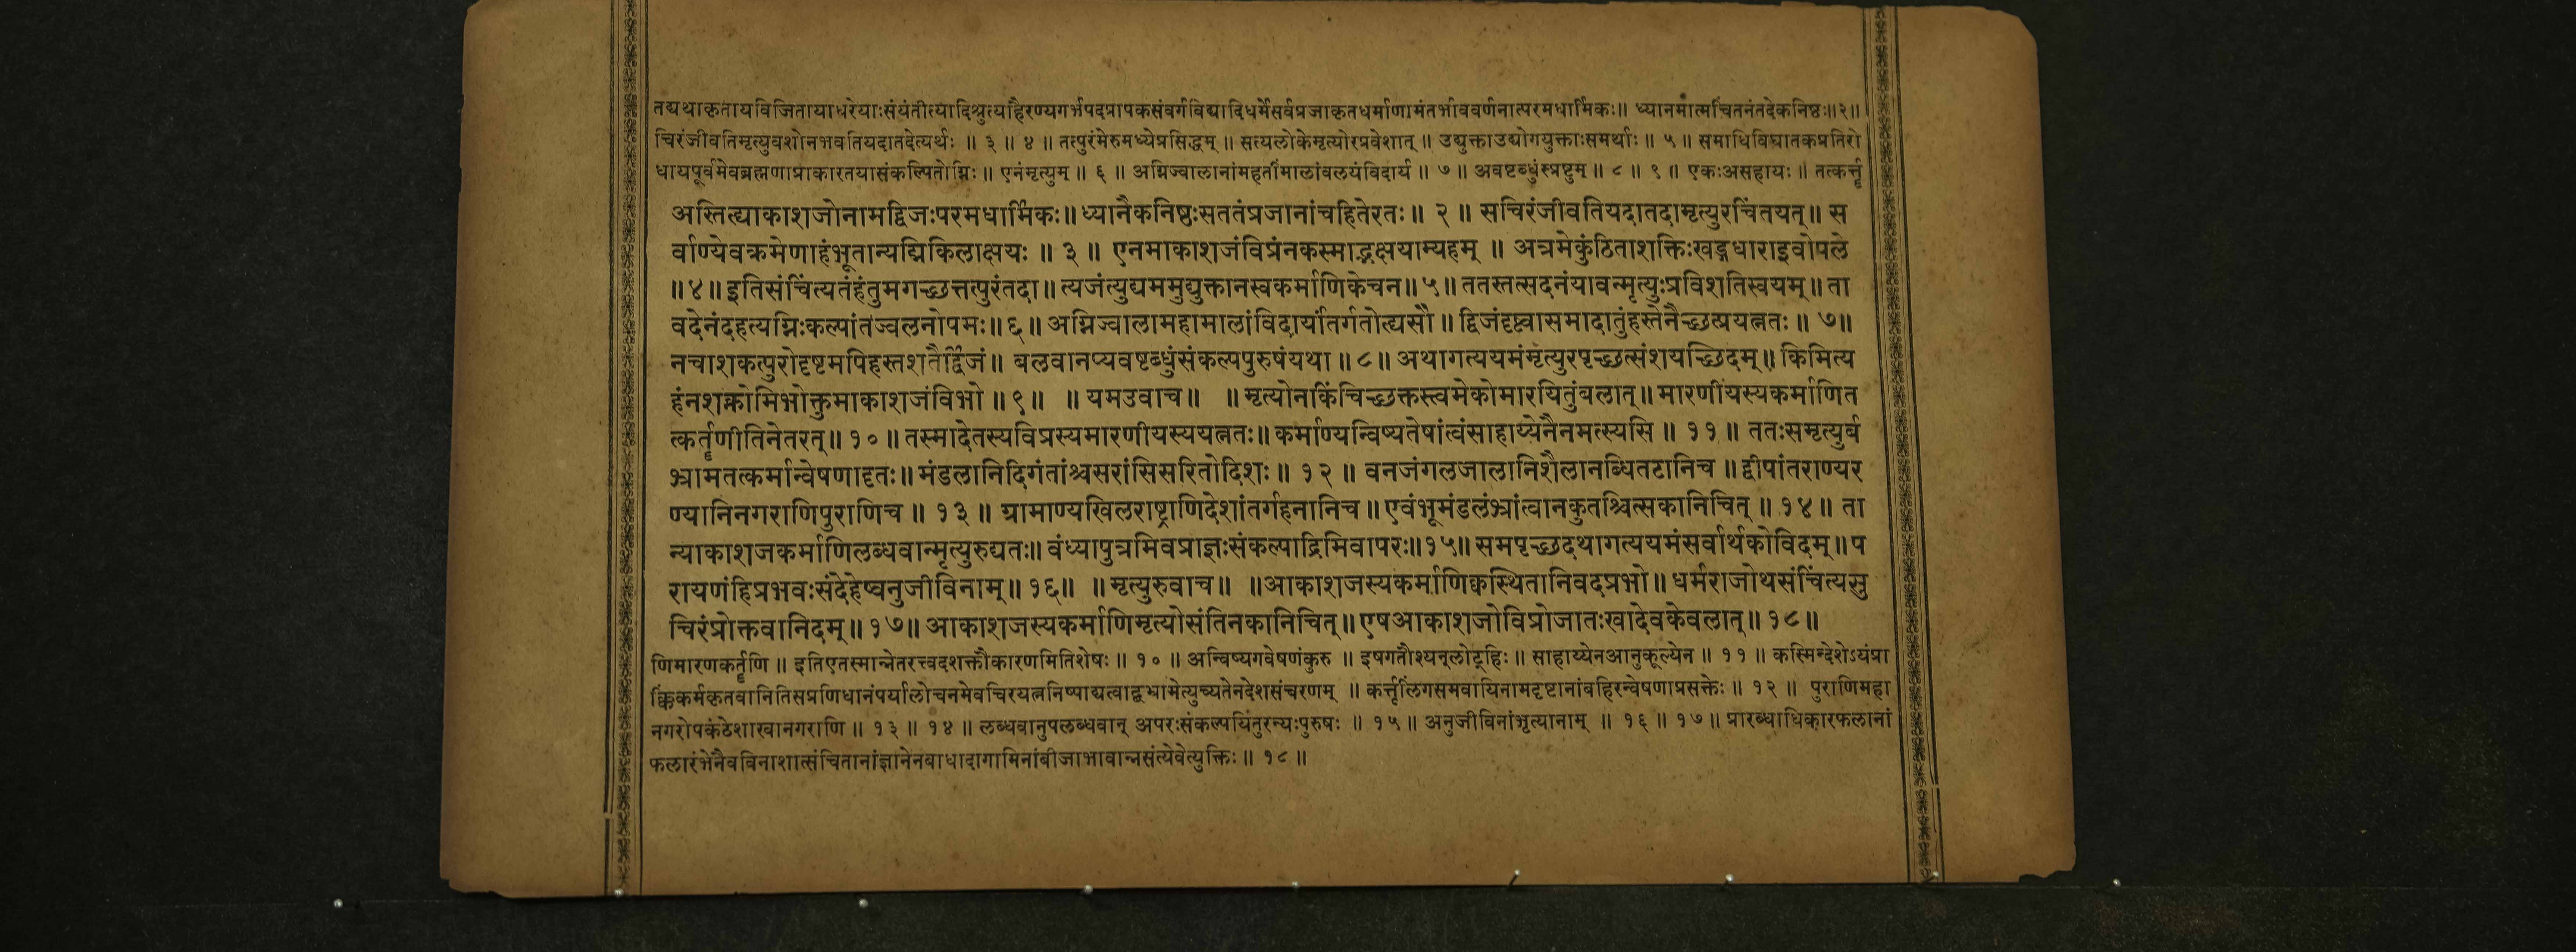 तद्यथाकृतायविजितायाधरेयाःसंयंतीत्यादिश्रुत्याहैरण्यगर्भपदप्रापकसंवर्गविद्यादिधर्मेसर्वप्रजाकृतधर्माणामंतर्भाववर्णनात्परमधार्मिकः॥ ध्यानमात्मचिंतनंतदेकनिष्ठः॥२॥
चिरंजीवतिमृत्युवशोनभवतियदातदेत्यर्थः ॥ ३ ॥ ४ ॥ तत्पुरंमेरुमध्येप्रसिद्धम् ॥ सत्यलोकेमृत्योरप्रवेशात् ॥ उद्युक्ताउद्योगयुक्ताःसमर्थाः ॥ ५ ॥ समाधिविघातकप्रतिरो
धायपूर्वमेवब्रह्मणाप्राकारतयासंकल्पितोग्निः ॥ एनंमृत्युम् ॥ ६ ॥ अग्निज्वालानांमहतींमालांवलयंविदार्य ॥ ७ ॥ अवष्टब्धुंस्प्रष्टुम् ॥ ८ ॥ ९ ॥ एकःअसहायः ॥ तत्कर्तॄ
अस्तित्द्याकाशजोनामद्विजःपरमधार्मिकः॥ ध्यानैकनिष्ठःसततंप्रजानांचहितेरतः॥ २ ॥ सचिरंजीवतियदातदामृत्युरचिंतयत्॥ स
र्वाण्येवक्रमेणाहंभूतान्यद्मिकिलाक्षयः ॥ ३ ॥ एनमाकाशजंविप्रंनकस्माद्भक्षयाम्यहम् ॥ अत्रमेकुंठिताशक्तिःखड्गधाराइवोपले
॥४॥ इतिसंचिंत्यतंहंतुमगच्छत्तत्पुरंतदा॥ त्यजंत्युद्यममुद्युक्तानस्वकर्माणिकेचन॥ ५॥ ततस्तत्सदनंयावन्मृत्युःप्रविशतिस्वयम्॥ ता
वदेनंदहत्यग्निःकल्पांतज्वलनोपमः॥ ६॥ अग्निज्वालामहामालांविदार्यांतर्गतोत्द्यसौ ॥ द्विजंदृष्ट्वासमादातुंहस्तेनैच्छत्प्रयत्नतः ॥ ७॥
नचाशकत्पुरोदृष्टमपिहस्तशतैर्द्विजं॥ बलवानप्यवष्टब्धुंसंकल्पपुरुषंयथा ॥ ८॥ अथागत्ययमंमृत्युरपृच्छत्संशयच्छिदम्॥ किमित्य
हंनशक्नोमिभोक्तुमाकाशजंविभो ॥ ९॥ ॥ यमउवाच॥ ॥ मृत्योनकिंचिच्छक्तस्त्वमेकोमारयितुंबलात्॥ मारणीयस्यकर्माणित
त्कर्तॄणीतिनेतरत्॥ १० ॥ तस्मादेतस्यविप्रस्यमारणीयस्ययत्नतः॥ कर्माण्यन्विष्यतेषांत्वंसाहाय्येनैनमत्स्यसि ॥ ११ ॥ ततःसमृत्युर्ब
भ्रामतत्कर्मान्वेषणादृतः॥ मंडलानिदिगंतांश्चसरांसिसरितोदिशः ॥ १२ ॥ वनजंगलजालानिशैलानब्धितटानिच ॥ द्वीपांतराण्यर
ण्यानिनगराणिपुराणिच ॥ १३ ॥ ग्रामाण्यखिलराष्ट्राणिदेशांतर्गहनानिच ॥ एवंभूमंडलंभ्रांत्वानकुतश्चित्सकानिचित् ॥ १४ ॥ ता
न्याकाशजकर्माणिलब्धवान्मृत्युरुद्यतः॥ वंध्यापुत्रमिवप्राज्ञःसंकल्पाद्रिमिवापरः॥१५॥ समपृच्छदथागत्ययमंसर्वार्थकोविदम्॥ प
रायणंहिप्रभवःसंदेहेष्वनुजीविनाम्॥ १६॥ ॥ मृत्युरुवाच॥ ॥आकाशजस्यकर्माणिक्वस्थितानिवदप्रभो॥ धर्मराजोथसंचिंत्यसु
चिरंप्रोक्तवानिदम्॥ १७॥ आकाशजस्यकर्माणिमृत्योसंतिनकानिचित्॥ एषआकाशजोविप्रोजातःखादेवकेवलात्॥ १८ ॥
णिमारणकर्तॄणि ॥ इतिएतस्मान्नेतरत्त्वदशक्तौकारणमितिशेषः ॥ १० ॥ अन्विष्यगवेषणंकुरु ॥ इषगतौश्यन्लोट्हिः ॥ साहाय्येनआनुकूल्येन ॥ ११ ॥ कस्मिन्देशेऽयंप्रा
क्किंकर्मकृतवानितिसप्रणिधानंपर्यालोचनमेवचिरयत्ननिष्पाद्यत्वाद्बभ्रामेत्युच्यतेनदेशसंचरणम् ॥ कर्त्तृलिंगसमवायिनामदृष्टानांबहिरन्वेषणाप्रसक्तेः ॥ १२ ॥ पुराणिमहा
नगरोपकंठेशाखानगराणि ॥ १३ ॥ १४ ॥ लब्धवानुपलब्धवान् अपरःसंकल्पयितुरन्यःपुरुषः ॥ १५ ॥ अनुजीविनांभृत्यानाम् ॥ १६ ॥ १७ ॥ प्रारब्धाधिकारफलानां
फलारंभेनैवविनाशात्संचितानांज्ञानेनबाधादागामिनांबीजाभावान्नसंत्येवेत्युक्तिः ॥ १८ ॥